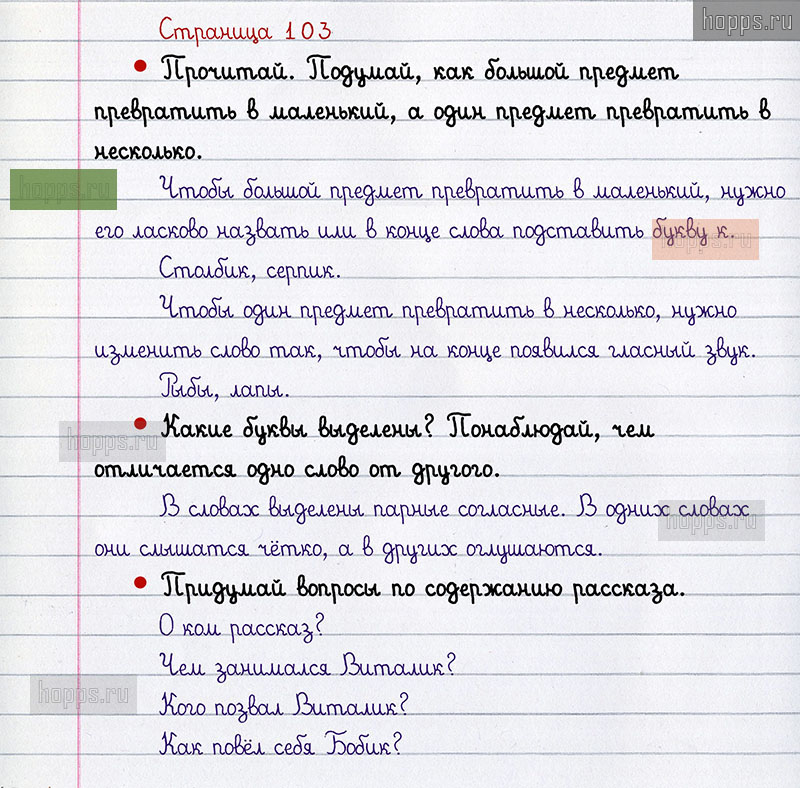 hopps.ru
Страница 103
• Прочитай. Подумай, как большой предмет
превратить в маленький, а один предмет превратить в
несколько.
hopps.ru
Чтобы большой предмет превратить в маленький, нужно
его ласково назвать или в конце слова подставить букву к.
hopps.ru
Столбик, серпик.
Чтобы один предмет превратить в несколько, нужно
изменить слово так, чтобы на конце появился гласный звук.
Рыбы, лапы.
• Какие буквы выделены? Понаблюдай, чем
hopps.ru
отличается одно слово от другого.
В словах выделены парные согласные. В одних словах
hopps.ru
они слышатся чётко, а в других оглушаются.
• Придумай вопросы по содержанию рассказа.
О ком рассказ?
Чем занимался Виталик?
hopps.ru
Кого позвал Виталик?
Как повёл себя Бобик?